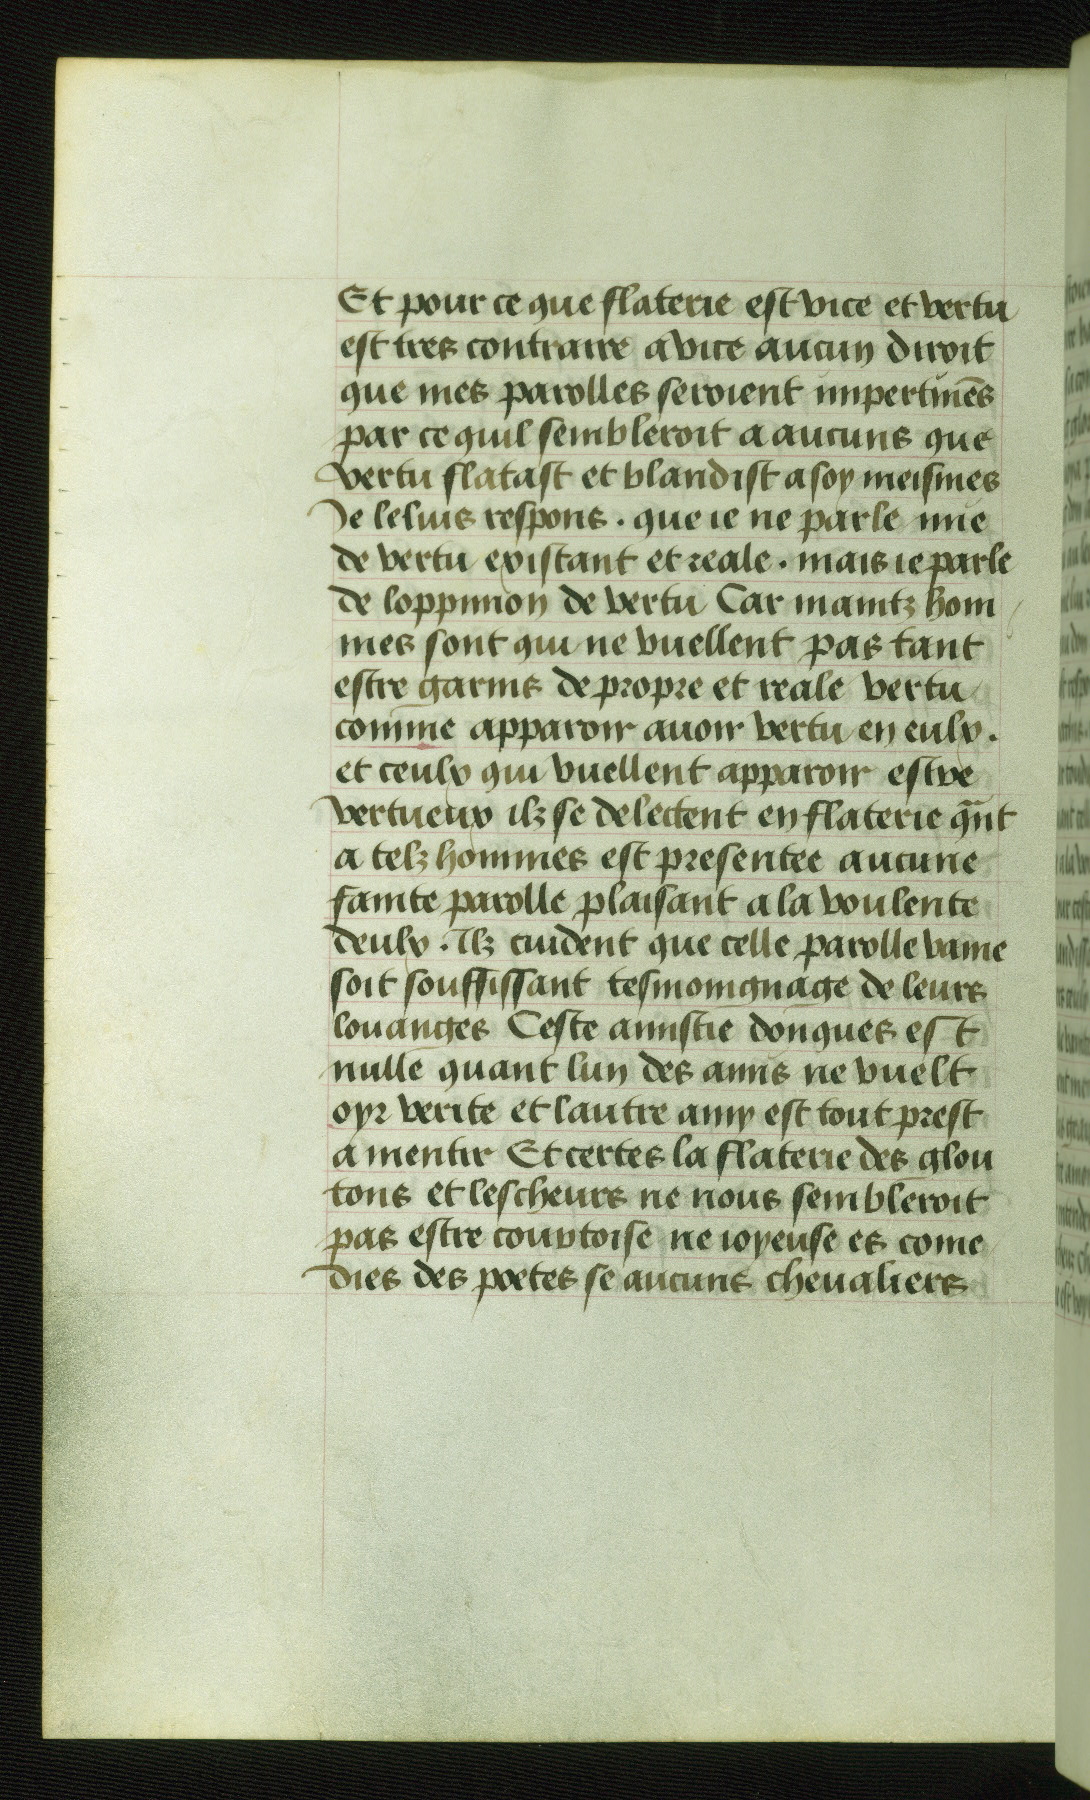 Et pour ce que flaterie est vice et vertu
est tres contraire a vice aucun diroit
que mes parolles seroient impertinēs
par ce quil sembleroit a aucuns que
vertu flatast et blandist a soy meismes
Je leluis respons . que ie ne parle mie
de vertu existant et reale . mais ie parle
de loppinion de vertu Car maintz hom
mes sont qui ne vuellent pas tant
estre garnis de propre et reale vertu
comme apparoir auoir vertu en eulx .
et ceulx qui vuellent apparoir estre
vertueux ilz se delectent en flaterie q̃nt
a telz hommes est presentee aucune
fainte parolle plaisant a la voulente
deulx . Ilz cuident que celle parolle vaine
soit souffissant tesmoingnage de leurs
louanges Ceste amistie donques est
nulle quant lun des amis ne vuelt
oyr verite et lautre amy est tout prest
a mentir Et certes la flaterie des glou
tons et lescheurs ne nous sembleroit
pas estre courtoise ne ioyeuse es come
dies des poetes se aucuns cheualiers